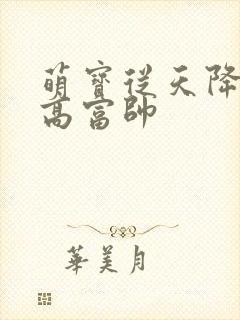 萌寶從天降
高富帥
華美月